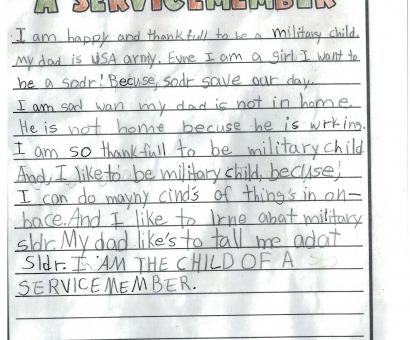 A SERVICEMEMBER
I am happy and thankfull to be a military child.
My dad is USA army. Evne I am a girl I want to
be a sodr! Becuse, sodr save our day.
I am sad wan my dad is not in home.
He is not home becuse he is wrking.
I am so thankfull to be military child
And, I like to be military child, becuse,
I can do mayny cind's of thing's in on-
bace. And I like to lrne abat military
sldr. My dad like's to tall me adat
sldr. I AM THE CHILD OF A
SERVICEMEMBER.